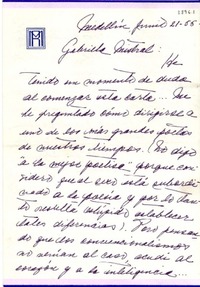 Medellín Junio 21-55.
Gabriela Mistral:
He
tenido un momento de duda
al comenzar esta carta... Me
he preguntado como dirigirse a
uno de los más grandes poetas
de nuestros tiempos. (No digo
"a la mejor poetisa" porque con-
sidero que el sexo está subordi-
nado a la poesía y por lo tan-
to resulta estúpido establecer
tales diferencias). Pero pensan-
do que los convencionalismos
no venían al caso, acudí al
corazón y a la inteligencia...